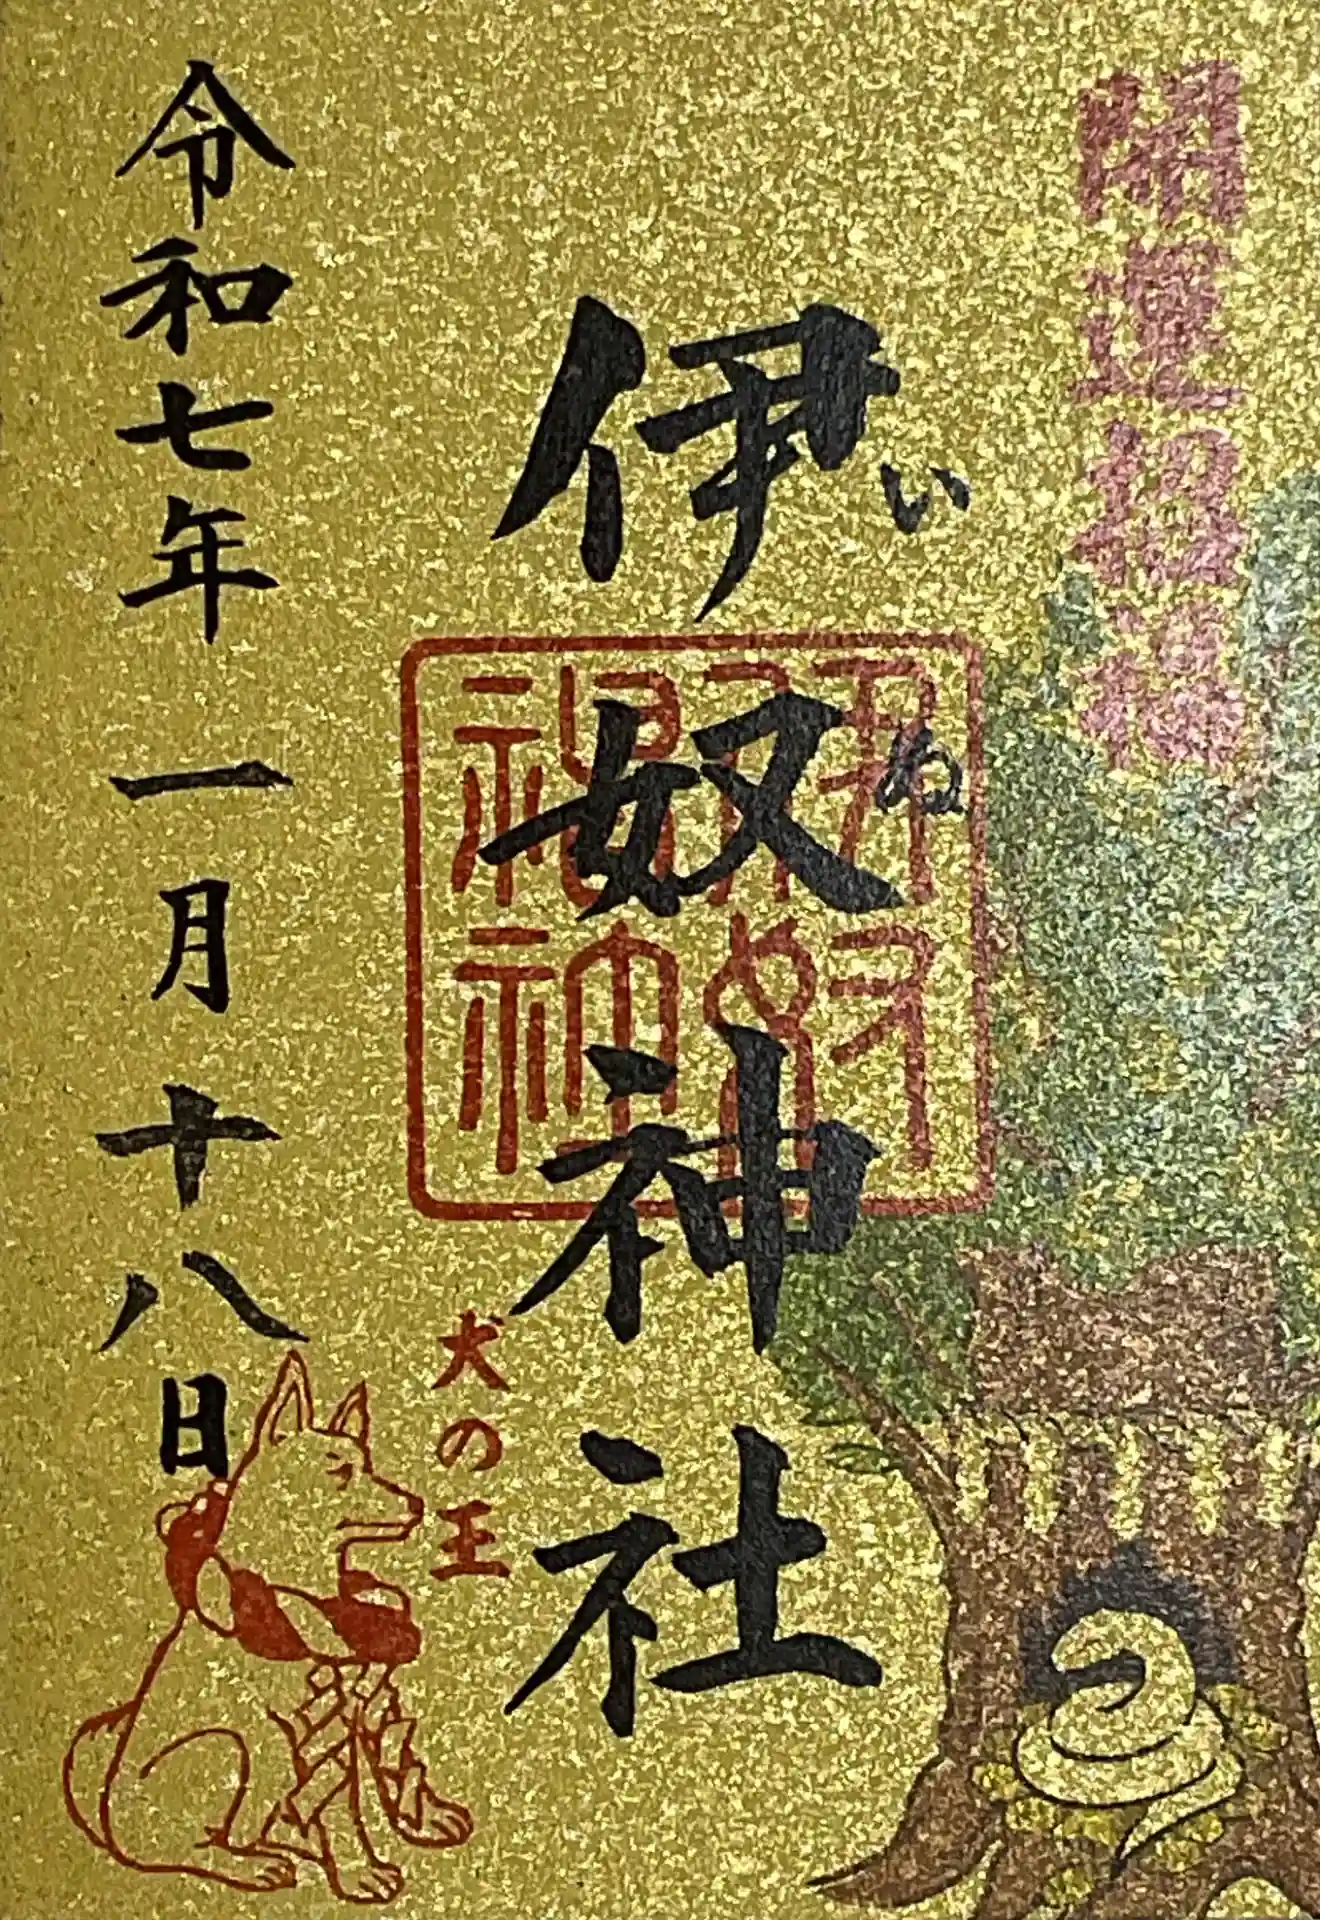 開運招福
伊奴神社
いぬ
伊奴神社
犬の王
令和七年一月十八日